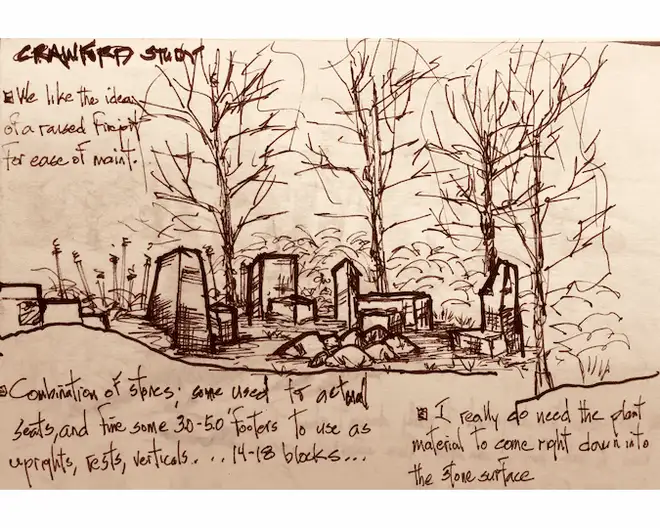 CRAWFORD STUDY
We like the idea
of a raised firepit
for ease of maint.
Combination of stones; some used for actual
seats, and fine some 30-50' footers to use as
uprights, rests, verticals. . . 14-18 blocks...
I really do need the plant
material to come right down into
the stone surface